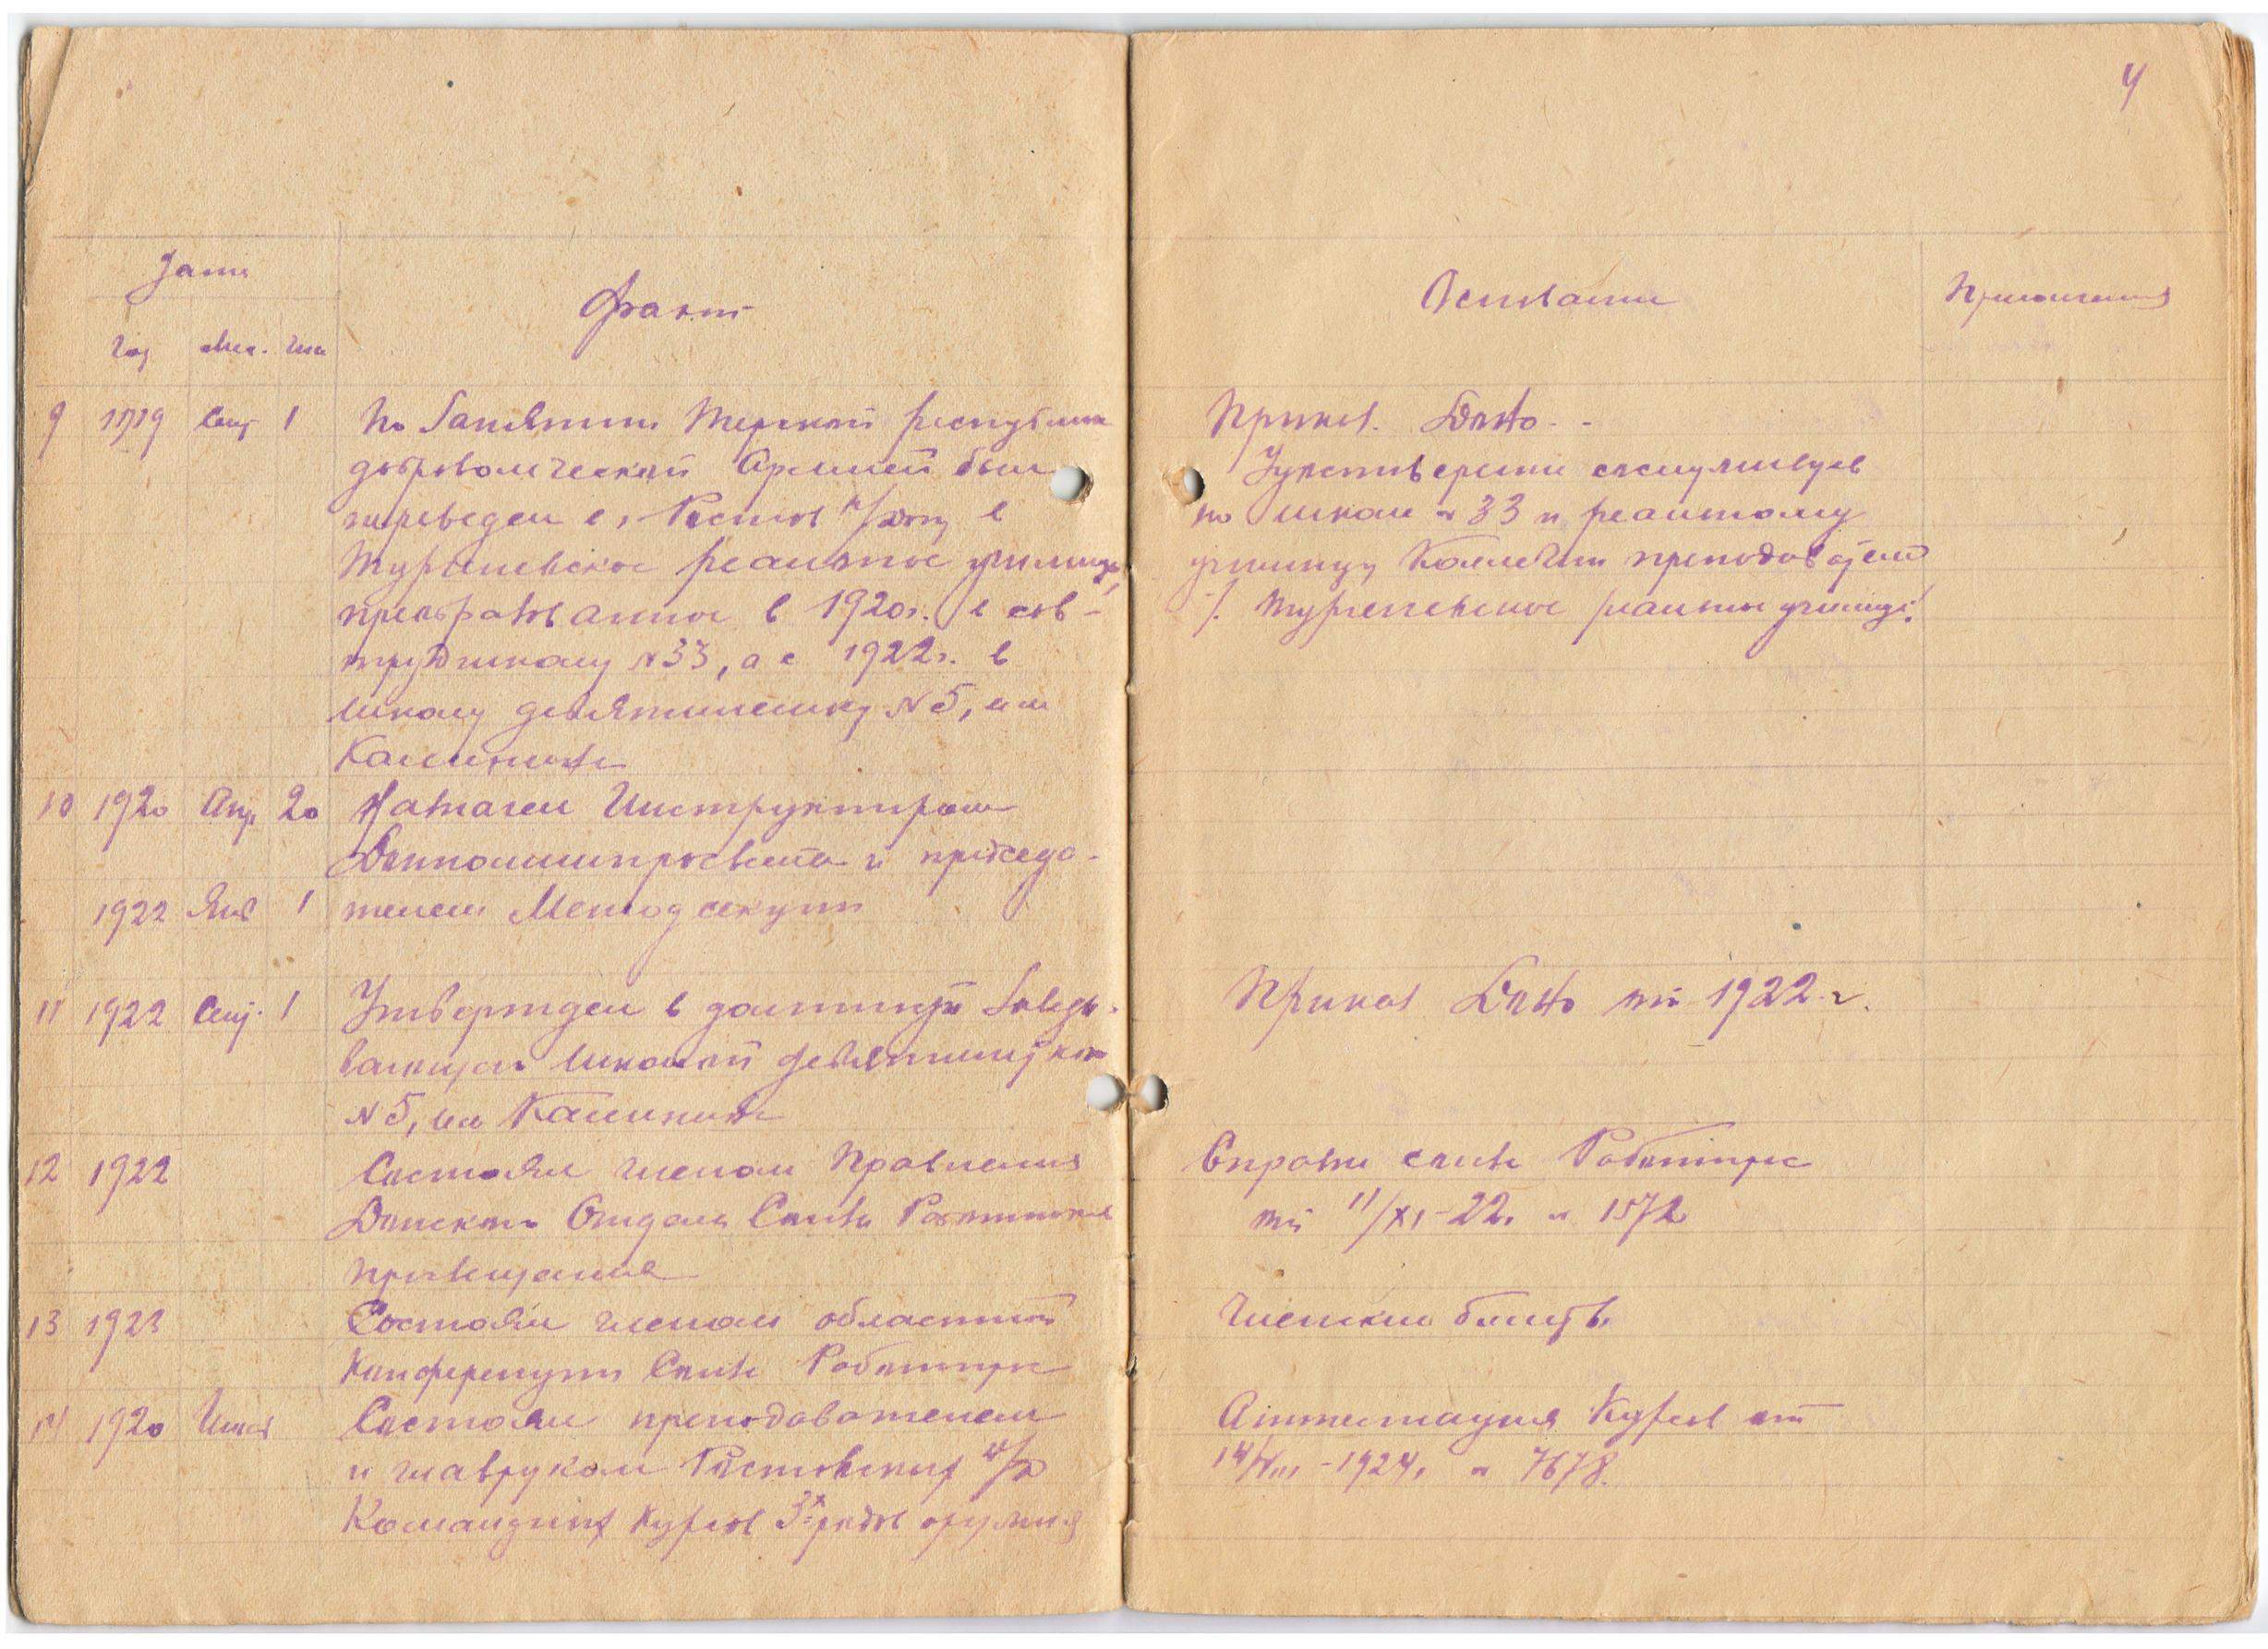 4
Дата
Факт
Основание
Примечания
Год Мес. Чис
9 1919 Сент 1 По занятии Терской республики
добровольческой Армией был
переведен в г. Ростов н/Дону в
Тургеневское реальное училище,
преобразованное в 1920 г. в сов-
трудшколу № 33, а с 1922 г. в
школу девятилетку № 5, им
Калинина
Приказ. ДонО
Удостоверение сослуживцев
по школе № 33 и реальному
училищу Коллегии преподавателей
/. Тургеневское реальное училище/
10 1920 Апр 20 Назначен Инструктором
и председа-
1922 Янв 1 телем Метод секции
11 1922 Сент. 1 Утвержден в должности Заведы-
вающего школой девятилеткой
№ 5, им Калинина
Приказ ДонО от 1922 г.
12 1922 Состоял членом Правления
Донского Отдела Союза Работников
просвещения
Справка союза Работпрос
от 11/XI-22 г. № 1572
13 1923 Состоял членом областной
Конференции Союза Работпрос
Членский билет.
14 1920 Состоял преподавателем
и главруком Ростовских н/Д
Командных Курсов 3х родов оружия
Аттестация Курсов от
14/VIII-1924 г. № 7678.